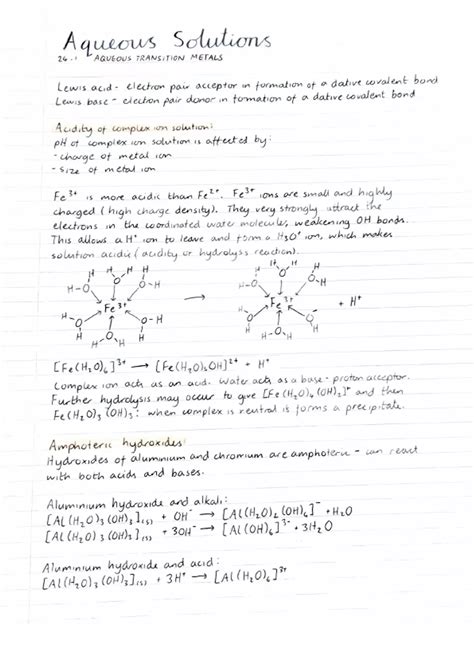 Aqueous Solutions
26.1 AQUEOUS TRANSITION METALS
Lewis acid - electron pair acceptor in formation of a dative covalent bond
Lewis base - electron pair donor in formation of a dative covalent bond
Acidity of complex ion solution:
pH of complex ion solution is affected by:
- charge of metal ion
- size of metal ion
Fe³⁺ is more acidic than Fe²⁺. Fe³⁺ ions are small and highly
charged (high charge density). They very strongly attract the
electrons in the coordinated water molecules, weakening OH bonds.
This allows a H⁺ ion to leave and form a H₃O⁺ ion, which makes
solution acidic (acidity or hydrolysis reaction).
[Fe(H₂O)₆]³⁺ → [Fe(H₂O)₅OH]²⁺ + H⁺
Complex ion acts as an acid. Water acts as a base - proton acceptor.
Further hydrolysis may occur to give [Fe(H₂O)₄(OH)₂]⁺ and then
Fe(H₂O)₃(OH)₃: when complex is neutral it forms a precipitate.
Amphoteric hydroxides:
Hydroxides of aluminium and chromium are amphoteric - can react
with both acids and bases.
Aluminium hydroxide and alkali:
[Al(H₂O)₃(OH)₃](s) + OH⁻ → [Al(H₂O)₂(OH)₄]⁻ + H₂O
[Al(H₂O)₃(OH)₃](s) + 3OH⁻ → [Al(OH)₆]³⁻ + 3H₂O
Aluminium hydroxide and acid:
[Al(H₂O)₃(OH)₃](s) + 3H⁺ → [Al(H₂O)₆]³⁺